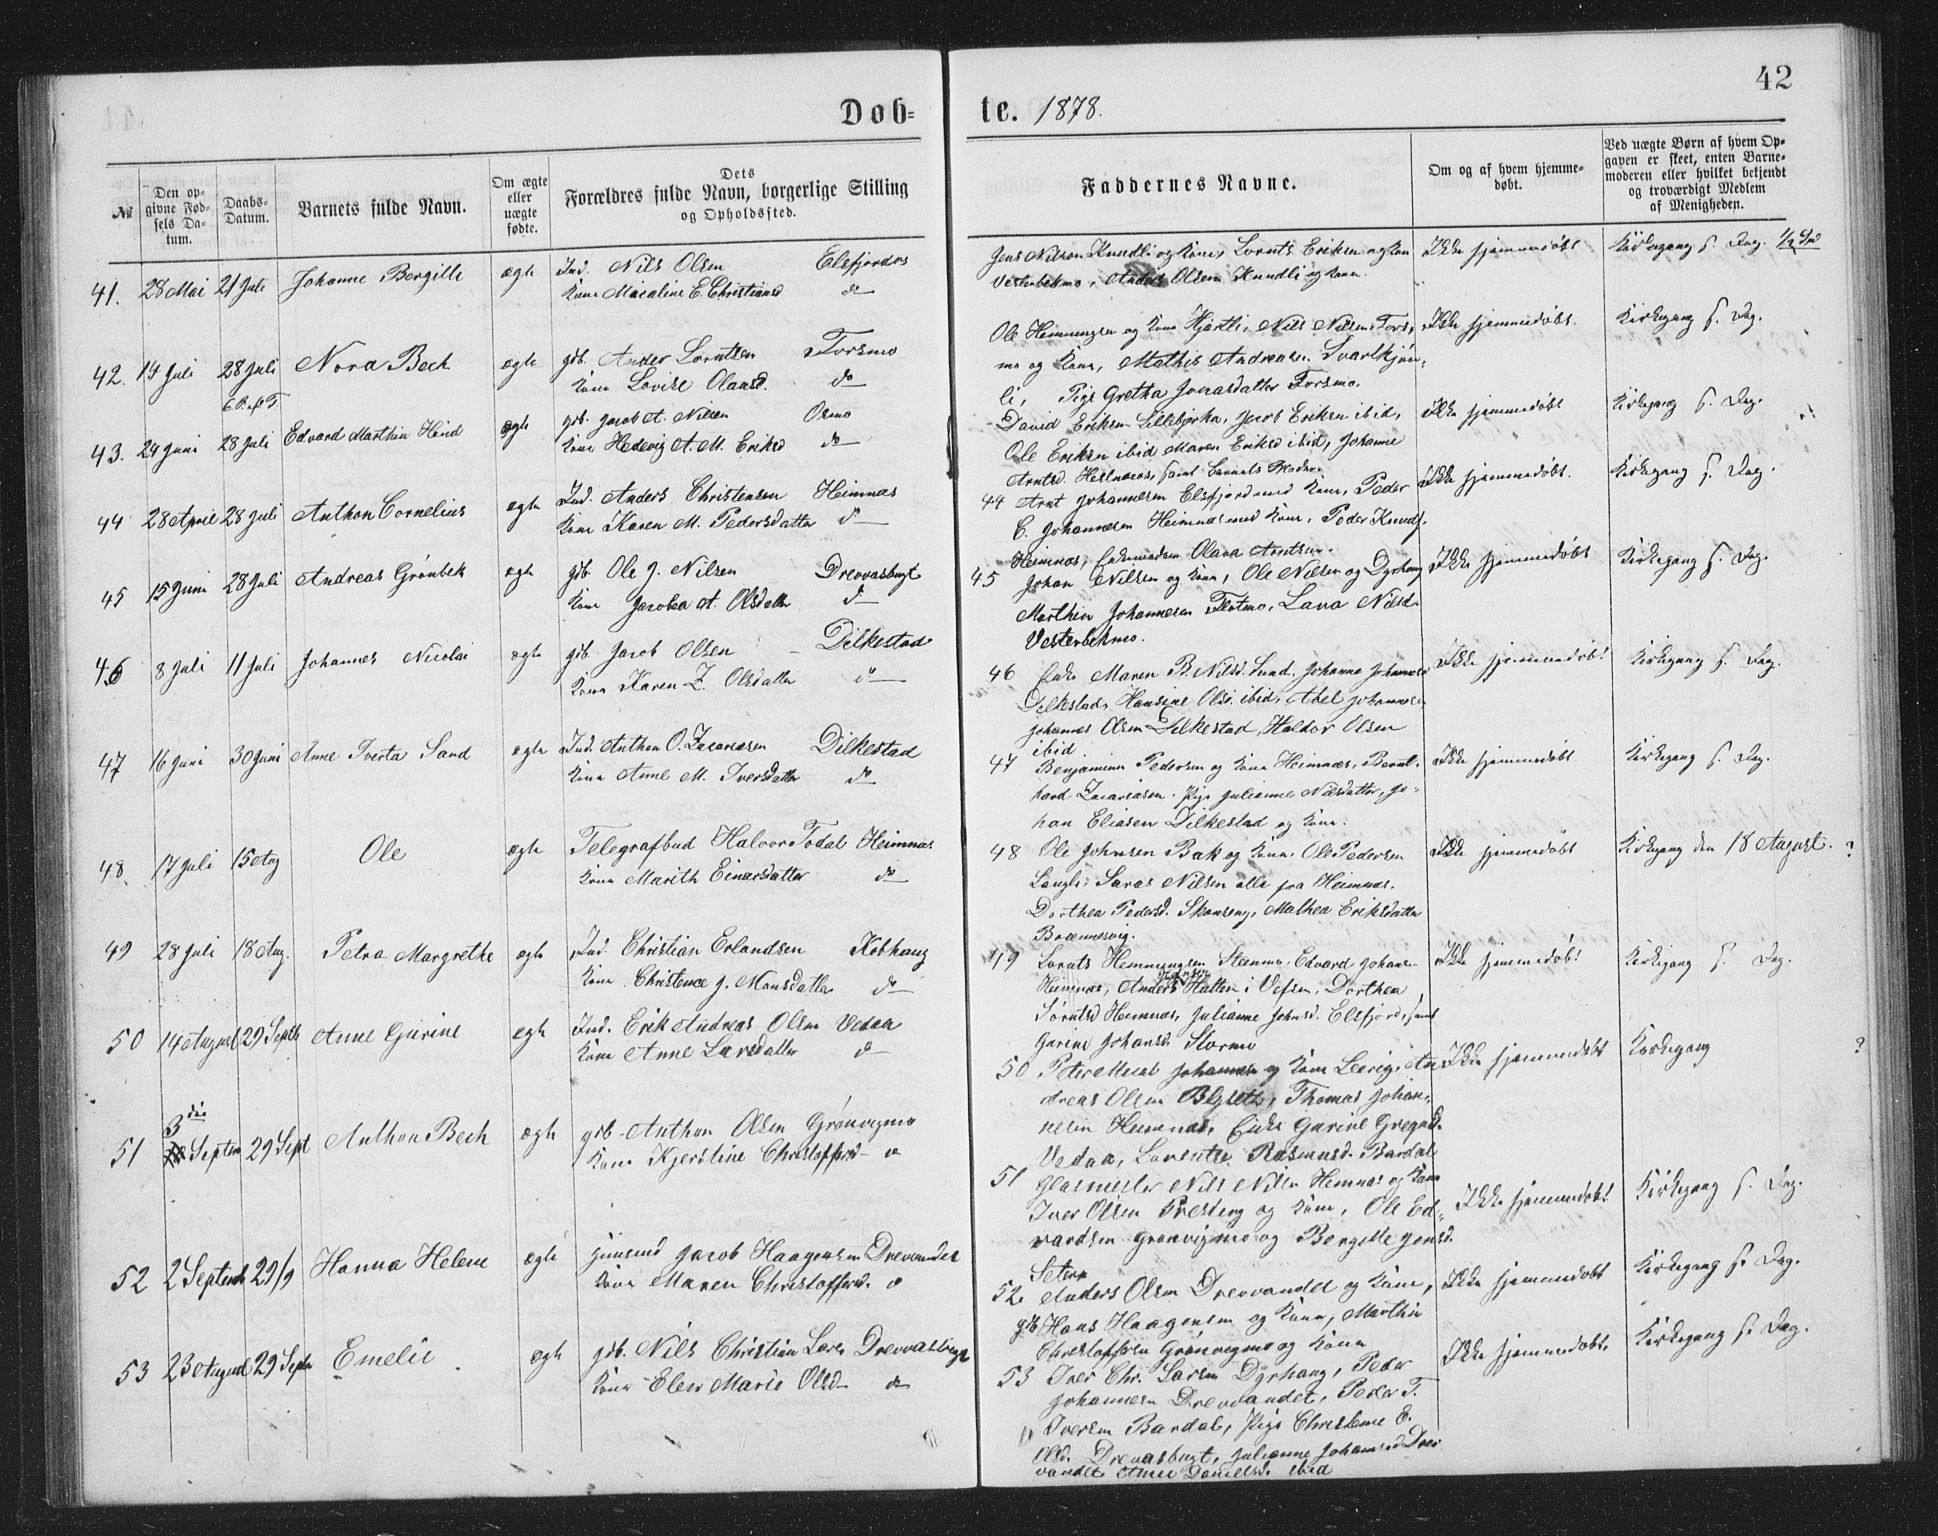 42
Døb-te. 1878.
№
Den opgivne Fødsels Datum.
Daabs-Datum.
Barnets fulde Navn.
Om ægte eller uægte fødte.
Dets Forældres fulde Navn, borgerlige Stilling og Opholdssted.
Faddernes Navne.
Om og af hvem hjemmedøbt.
Ved uægte Børn af hvem Opgaven er skeet, enten Barnemoderen eller hvilket bekjendt og troværdigt Medlem af Menigheden.
41. 28 Mai 21 Juli Johanne Bergitte ægte Ind. Nils Olsen Elsfjordos
Kone E. Christiansd do
Jens Nilsen Kundli og Kone, Lornts Eriksen og Kone
Vesterbekmo, Anders Olsen Kundli og Kone.
Ikke hjemmedøbt Kirkegang s. Dag.
42. 14 Juli 28 Juli Nora Bech ægte gdb. Ander Lorntsen Forsmo
6 S. e. T. Kone Lovise Olausd. do
Ole Hemmingsen og Kone Hjartli, Nils Nilsen Fors,
mo og Kone, Mathis Andreasen Svartkjøn,
li, Pige Gretha Jonasdatter Forsmo.
Ikke hjemmedøbt. Kirkegang s. Dag.
43. 24 Juni 28 Juli Edvard Marthin Hind ægte gdb. Jacob A. Nilsen Osmo
Kone Hedevig A. M. Eriksd do
David Eriksen Lillebjerka, Jacob Eriksen ibid,
Ole Eriksen ibid Maren Eriksd ibid, Johanne
Arntsd. samt Barnets Moder.
Ikke hjemmedøbt Kirkegang s. Dag.
44 28 April 28 Juli Anthon Cornelius ægte Ind. Anders Christensen Heimnæs
Kone Karen M. Pedersdatter do
44 Arnt Johannesen Elsfjord med Kone, Peder
C. Johannesen Heimnæs med Kone, Peder Knuds.
Heimnæs, Olava Arntsen.
Ikke hjemmedøbt. Kirkegang s. Dag.
45 15 Juni 28 Juli Andreas Grønbek ægte gdb. Ole J. Nilsen Drevvasbugt
Kone Jacobea A. Olsdatter do
45 Johan Nilsen og Kone, Ole Nielsen og Dyrhaug
Marthin Johannesen Flotmo, Lava Nilsd.
Vesterbekmo.
Ikke hjemmedøbt Kirkegang s. Dag.
46 8 Juli 11 Juli Johannes Nicolai ægte gdb. Jacob Olsen Dilkestad
Kone Karen Z. Olsdatter do
46 Enke Maren B. Nilsd. Sund. Johanna Johannesd
Dilkestad, Hansine Olsd. ibid, Abel Johannes
Johannes Olsen Dilkestad, Haldor Olsen
ibid
Ikke hjemmedøbt Kirkegang s. Dag.
47 16 Juni 30 Juni Anne Iverta Sand ægte Ind. Anthon O. Zacariasen Dilkestad
Kone Anne M. Iversdatter do
47 Benjamin Pedersen og Kone Heimnæs, Bern-
hard Zacariasen. Pige Julianne Nilsdatter, Jo-
han Eliasen Dilkestad og Kone.
Ikke hjemmedøbt Kirkegang s. Dag.
48. 17 Juli 15 Aug Ole ægte Telegrafbud Halvor Todal Heimnæs
Kone Marith Einarsdatter do
48 Ole Johnsen Bak og Kone. Ole Pedersen
Langli, Saras Nilsen alle fra Heimnæs.
Dorthea Pedersd. Skonseng, Mathea Eriksdatter
Brænnesvig.
Ikke hjemmedøbt Kirkegang den 18 August. ?
49 28 Juli 18 Aug. Petra Margrethe ægte Ind. Christian Erlandsen Kobhaug
Kone Christence J. Monsdatter do
49 Lornts Hemmingsen Steenmo, Edvard Johans
Heimnæs, Anders Hansen Hatten i Vefsn, Dorthea
Heimnæs, Julianne Johnsd. Elsfjord, samt
Garine Johansd. Stormo
Ikke hjemmedøbt Kirkegang s. Dag.
50 14 August 29 Septb Anne Gurine ægte Ind. Erik Andreas Olsen Vedaa
Kone Anne Larsdatter do
50 Peter Johannesen og Kone Leerig, An
dreas Olsen Thomas Johan,
nesen Heimnæs, Enke Garine
Vedaa, Lorentse Rasmusd. Bardal
Ikke hjemmedøbt Kirkegang ?
51 3die Septem 29 Sept Anthon Bech ægte gdb. Anthon Olsen Grønvigmo
Kone Kjerstine Christoffersd do
51 Glasmester Nils Nilsen Hemnæs og Kone
Iver Olsen Presteng og Kone, Ole Ed-
vardsen Grønvigmo og Bergitte Jensd.
Seteren
Ikke hjemmedøbt Kirkegang s. Dag.
52 2 Septemb 29/9 Hanna Helene ægte Jacob Haagensen Drevvandet
Kone Maren Christoffersd. do
52. Anders Olsen Drevvandet og Kone,
gdb Hans Haagensen og Kone, Marthin
Christoffersen Grønvigmo og Kone
Ikke hjemmedøbt Kirkegang s. Dag.
53 23 August 29 Septe Emelie ægte gdb. Nils Christian Lars. Drevvasbugt
Kone Elen Marie Olsd do
53 Iver Chr. Larsen Dyrhaug, Peder
Johannesen Drevvandet, Peder T.
Iversen Bardal, Pige Christence E.
Olsd. Drevasbugt, Julianne Johannesd Drev
vandet Anne Danielsd. ibid
Ikke hjemmedøbt. Kirkegang s. Dag.